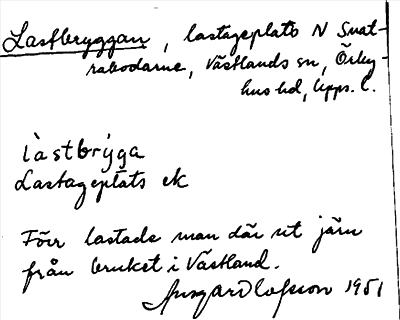 Lastbryggan, lastageplats N Snat-
rabodarne, Västlands sn, Örby-
hus hd, Upps. l.
làstbrýga
Lastageplats ek
Förr lastade man där ut järn
från bruket i Västland.
Ansgar Olofsson 1951